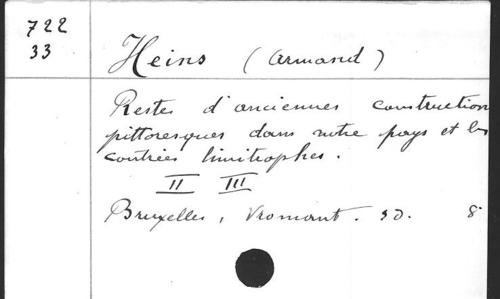 722
33
Heins (Armand)
Restes d'anciennes construction
pittoresques dans notre pays et les
contrées limitrophes.
II III
Bruxelles, Vromant. s.d. 8°